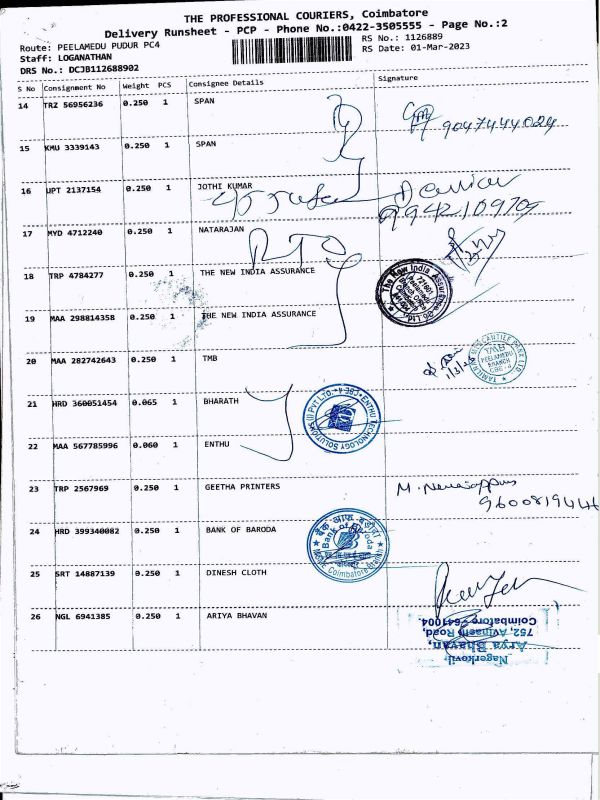 THE PROFESSIONAL COURIERS, Coimbatore
Delivery Runsheet - PCP - Phone No.:0422-3505555 - Page No.:2
Route: PEELAMEDU PUDUR PC4
RS No.: 1126889
Staff: LOGANATHAN
RS Date: 01-Mar-2023
DRS No.: DCJB112688902
S No Consignment No Weight PCS Consignee Details Signature
14 TRZ 56956236 0.250 1 SPAN
9047444024
15 KMU 3339143 0.250 1 SPAN
16 UPT 2137154 0.250 1 JOTHI KUMAR
9942109709
17 MYD 4712240 0.250 1 NATARAJAN
RTO
18 TRP 4784277 0.250 1 THE NEW INDIA ASSURANCE
The New India Assurance
19 MAA 298814358 0.250 1 THE NEW INDIA ASSURANCE
20 MAA 282742643 0.250 1 TMB
TMB
PEELAMEDU
BRANCH
21 HRD 360051454 0.065 1 BHARATH
ENTHU TECHNOLOGY SOLUTIONS (I) PVT LTD.
22 MAA 567785996 0.060 1 ENTHU
23 TRP 2567969 0.250 1 GEETHA PRINTERS
24 HRD 399340082 0.250 1 BANK OF BARODA
बैंक ऑफ़ बड़ौदा
Bank of Baroda
Coimbatore Branch
25 SRT 14887139 0.250 1 DINESH CLOTH
26 NGL 6941385 0.250 1 ARIYA BHAVAN
Nagerkovil
Arya Bhavan,
752, Avinashi Road,
Coimbatore - 641004.